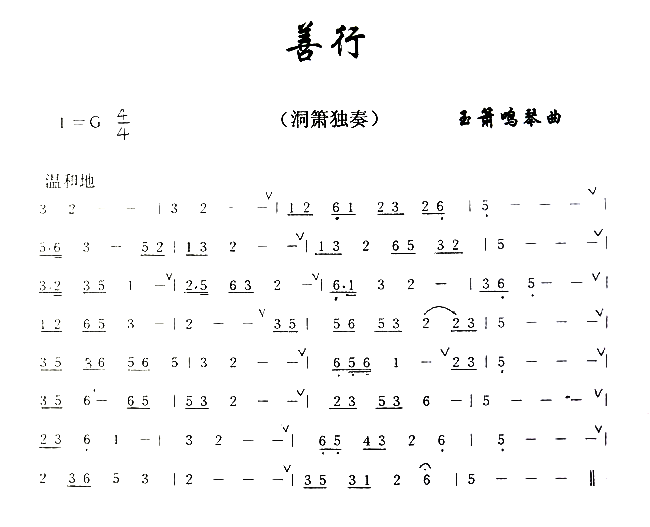 善行
1=G 4/4 （洞箫独奏） 玉箫鸣琴曲
温和地
3 2 - - | 3 2 - - | 12 61 23 26 | 5 - - - |
5·6 3 - 52 | 13 2 - - | 13 2 65 32 | 5 - - - |
3·2 35 1 - | 2·5 63 2 - | 6·1 3 2 - | 36 5 - - |
12 65 3 - | 2 - - 35 | 56 53 2 23 | 5 - - - |
35 36 56 5 | 3 2 - - | 656 1 - 23 | 5 - - - |
35 6 - 65 | 53 2 - - | 23 53 6 - | 5 - - - |
23 6 1 - | 3 2 - - | 65 43 2 6 | 5 - - - |
2 36 5 3 | 2 - - - | 35 31 2 6 | 5 - - - ||